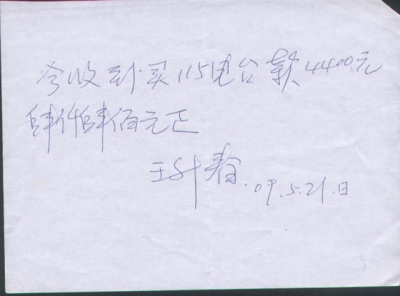 今收到买115电台款4400.元
肆仟肆佰元正
王升春.09.5.21.日